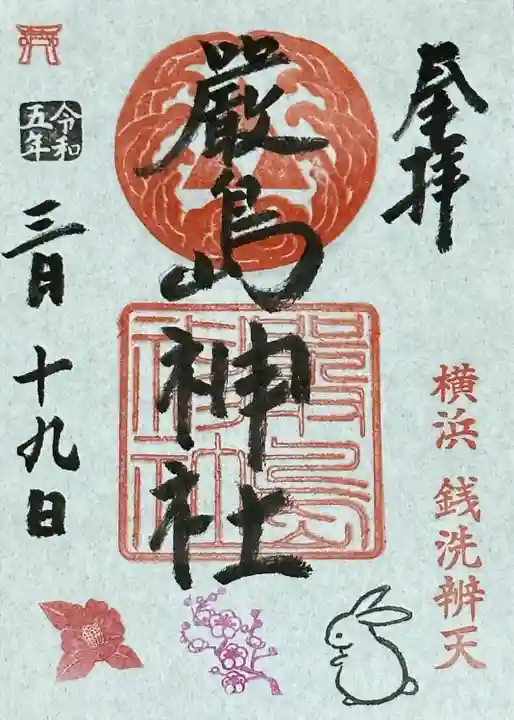 奉拝
横浜 銭洗辨天
厳島神社
厳島
神社
令和
五年
三月十九日